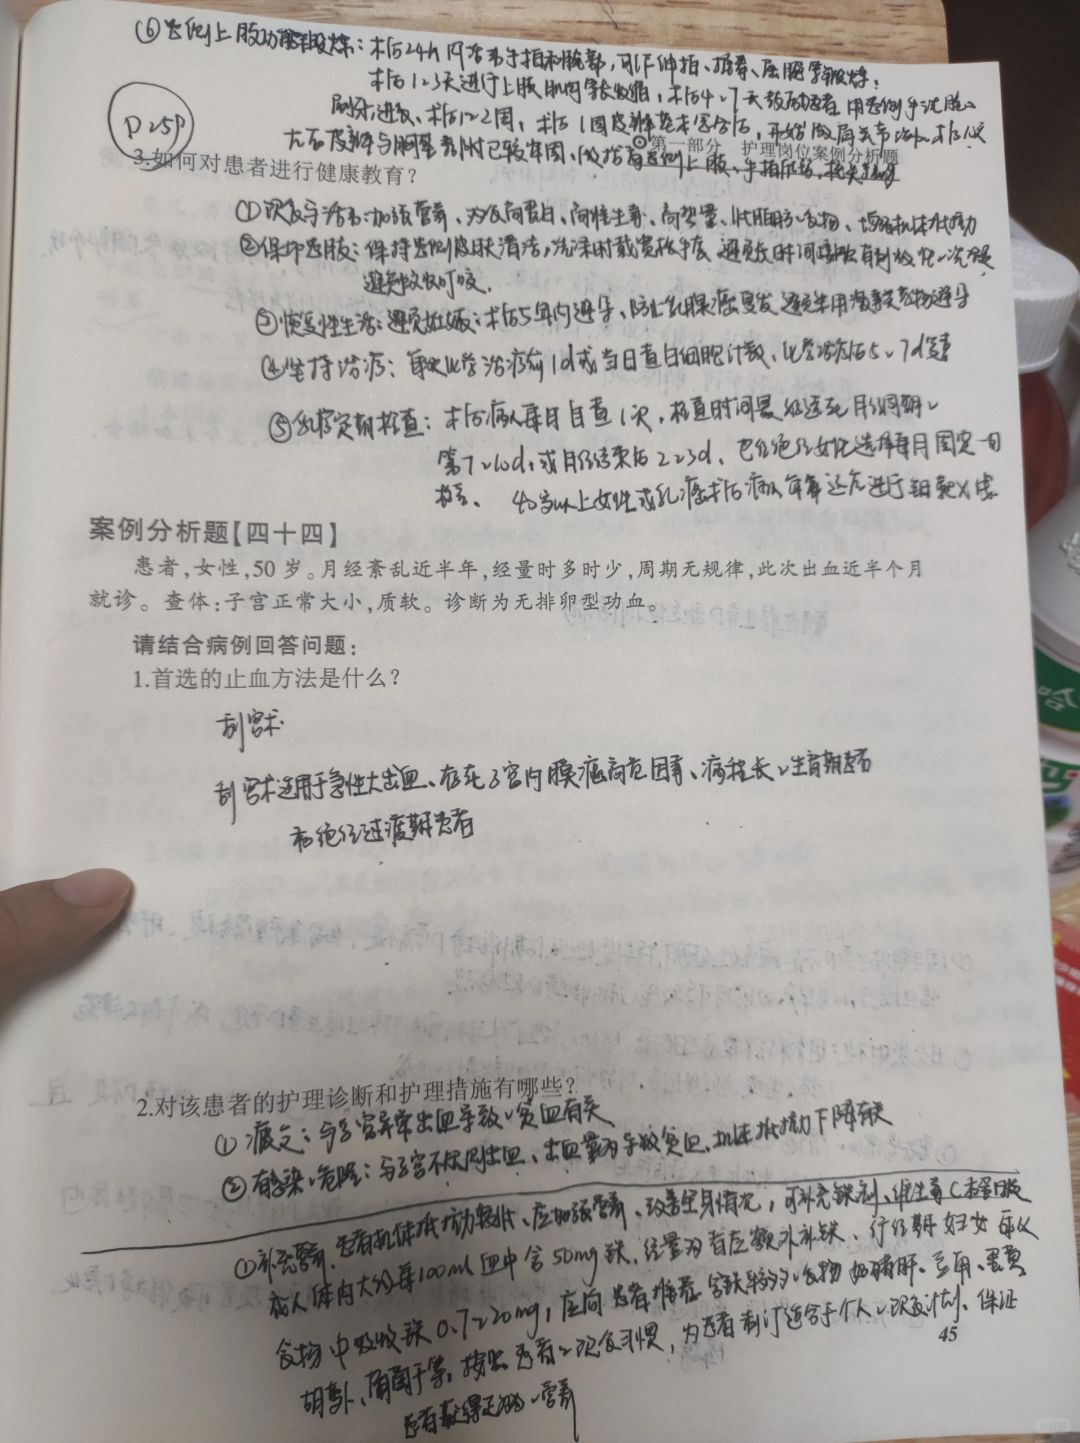 ⑥患侧上肢功能锻炼：术后24h内活动手指和腕部，可作伸指、握拳、屈腕等锻炼；
术后1~3天进行上肢肌肉等长收缩，术后4~7天鼓励患者用患侧手洗脸、
刷牙、进食，术后1~2周，术后1周皮瓣基本愈合后，开始做肩关节活动，术后10天
左右皮瓣与胸壁黏附已较牢固，做抬高患侧上肢、手指爬墙，梳头等锻炼
P259
第一部分 护理岗位案例分析题
3.如何对患者进行健康教育？
①饮食与活动：加强营养、为高蛋白、高维生素、高热量、低脂肪食物，增强机体抵抗力
②保护患肢：保持患侧皮肤清洁，洗涤时戴宽松手套，避免长时间有刺激
避免蚊虫叮咬。
③恢复性生活：避免妊娠：术后5年内避孕，防止乳腺癌复发
④坚持治疗：每次化学治疗前1d或当日查白细胞计数，化学治疗后5~7d复查
⑤乳房定期检查：术后病人每月自查1次，检查时间最好选在月经周期
第7~10d，或月经结束后2~3d，已经绝经女性选择每月固定一日
检查、40岁以上女性或乳癌术后病人每年还应进行钼靶X线
案例分析题【四十四】
患者，女性，50岁。月经紊乱近半年，经量时多时少，周期无规律，此次出血近半个月
就诊。查体：子宫正常大小，质软。诊断为无排卵型功血。
请结合病例回答问题：
1.首选的止血方法是什么？
刮宫术
刮宫术适用于急性大出血、存在子宫内膜癌高危因素、病程长、生育期患者
和绝经过渡期患者
2.对该患者的护理诊断和护理措施有哪些？
①疲乏：与子宫异常出血导致、贫血有关
②有感染、危险：与子宫不规则出血、出血量多导致贫血、机体抵抗力下降有关
①补充营养、患者机体抵抗力较低、应加强营养、改善全身情况，可补充铁剂、维生素C和蛋白质
成人体内大约每100ml血中含50mg铁、经量多者应额外补铁、行经期妇女每天
食物中吸收铁0.7~2.0mg，应向患者推荐含铁较多、食物如猪肝、豆角、蛋黄
胡萝卜、葡萄干等，按照患者、饮食习惯，为患者制订适合于个人、饮食计划、保证
患者获得足够、营养
45